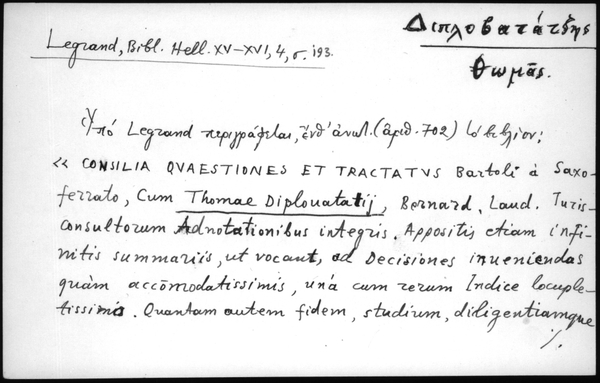 Διπλοβατάτζης
Θωμᾶς.
Legrand, Bibl. Hell. XV–XVI, 4, σ. 193.
Ὑπό Legrand περιγράφεται, ἔνθ' ἀνωτ. (ἀριθ. 702) τό βιβλίον:
« CONSILIA QVAESTIONES ET TRACTATVS Bartoli à Saxo-
ferrato, Cum Thomae Diplouatatij, Bernard. Laud. Iuris-
consultorum Adnotationibus integris. Appositis etiam infi-
nitis summariis, ut vocant, ad Decisiones inueniendas
quàm accōmodatissimis, unà cum rerum Indice locuple-
tissimo. Quantam autem fidem, studium, diligentiamque
./.